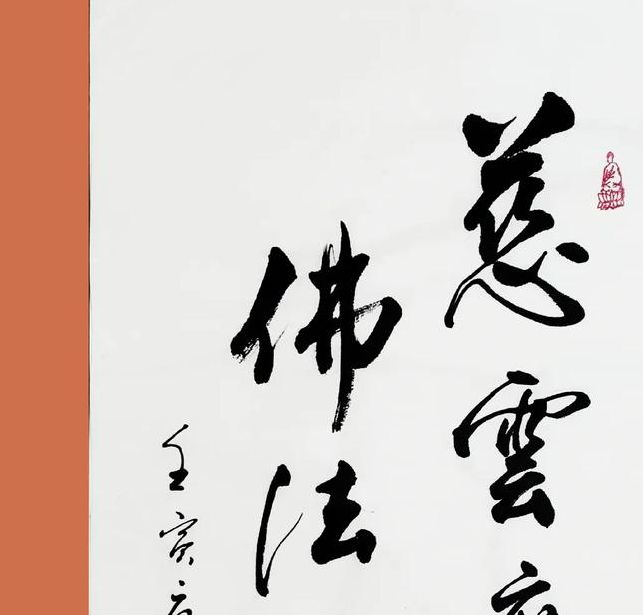 慈雲
佛法
壬寅